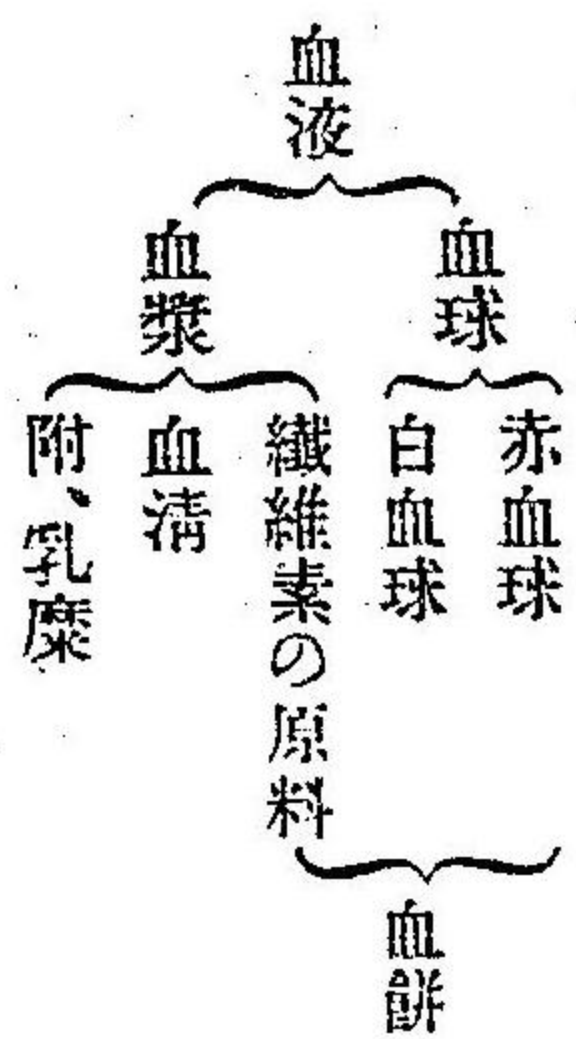 血液
血球
赤血球
白血球
血漿
纎維素の原料
血清
附、乳糜
血餅